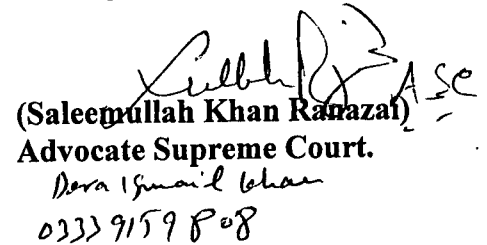 ASC
(Saleemullah Khan Ranazai)
Advocate Supreme Court.
Dera Ismail Khan
03339159808